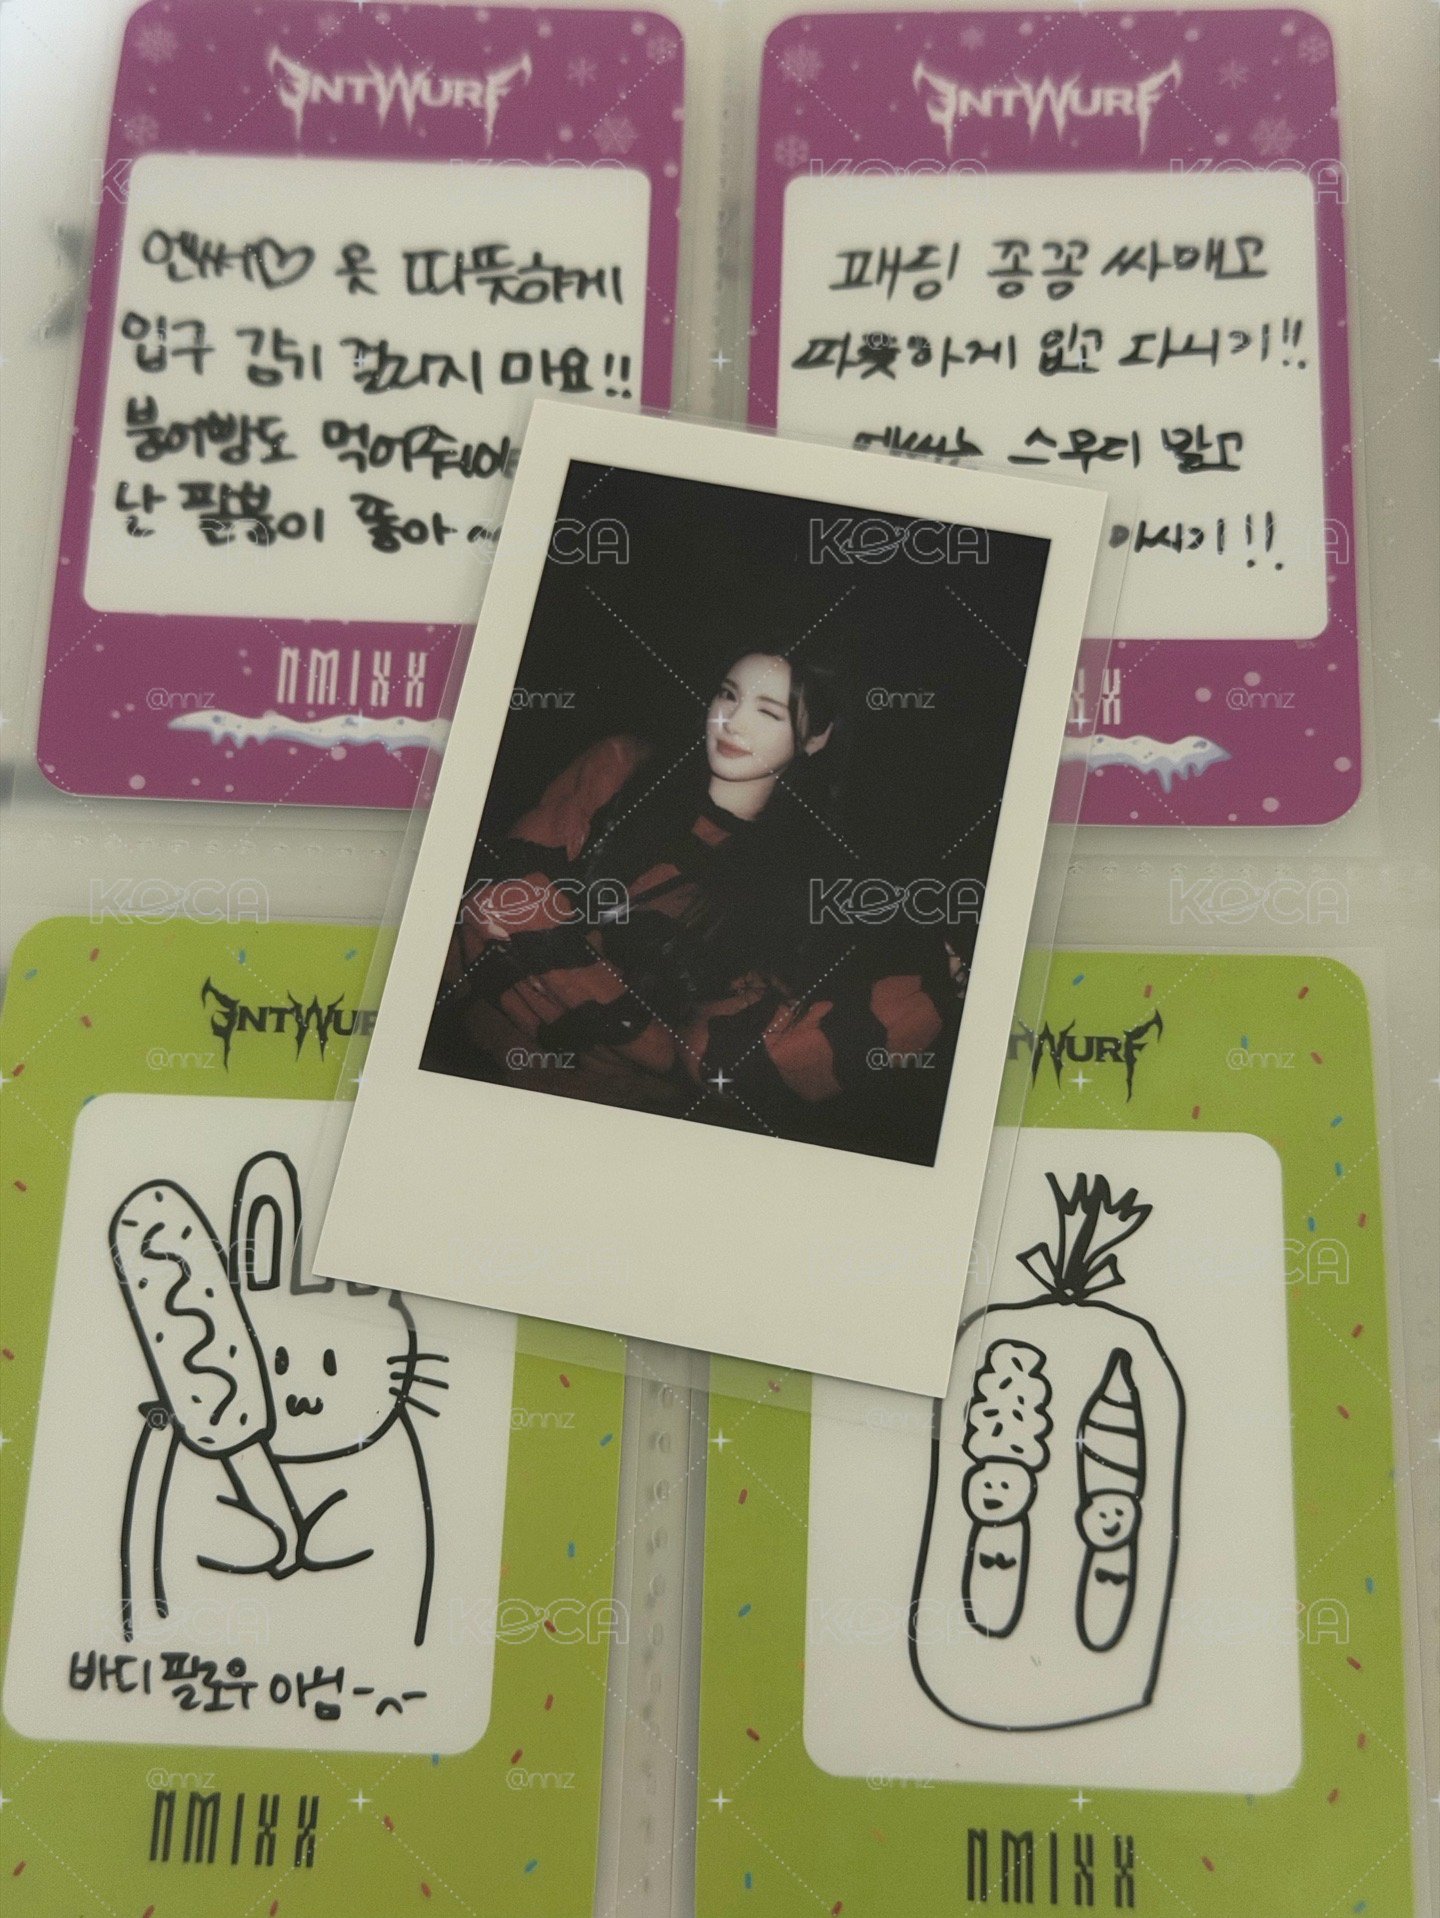 ENTWURF
엔써♡ 옷 따뜻하게
입구 감취 걸리지 마요!!
붕어빵도 먹어줘야
난 팥붕이 좋아
NMIXX
ENTWURF
패딩 꽁꽁 싸매고
따뜻하게 입고 다시기!!
스무디 말고
마시기!!
XX
ENTWURF
바디 팔로우 아님-^-
NMIXX
TWURF
NMIXX
KOCA
@nniz